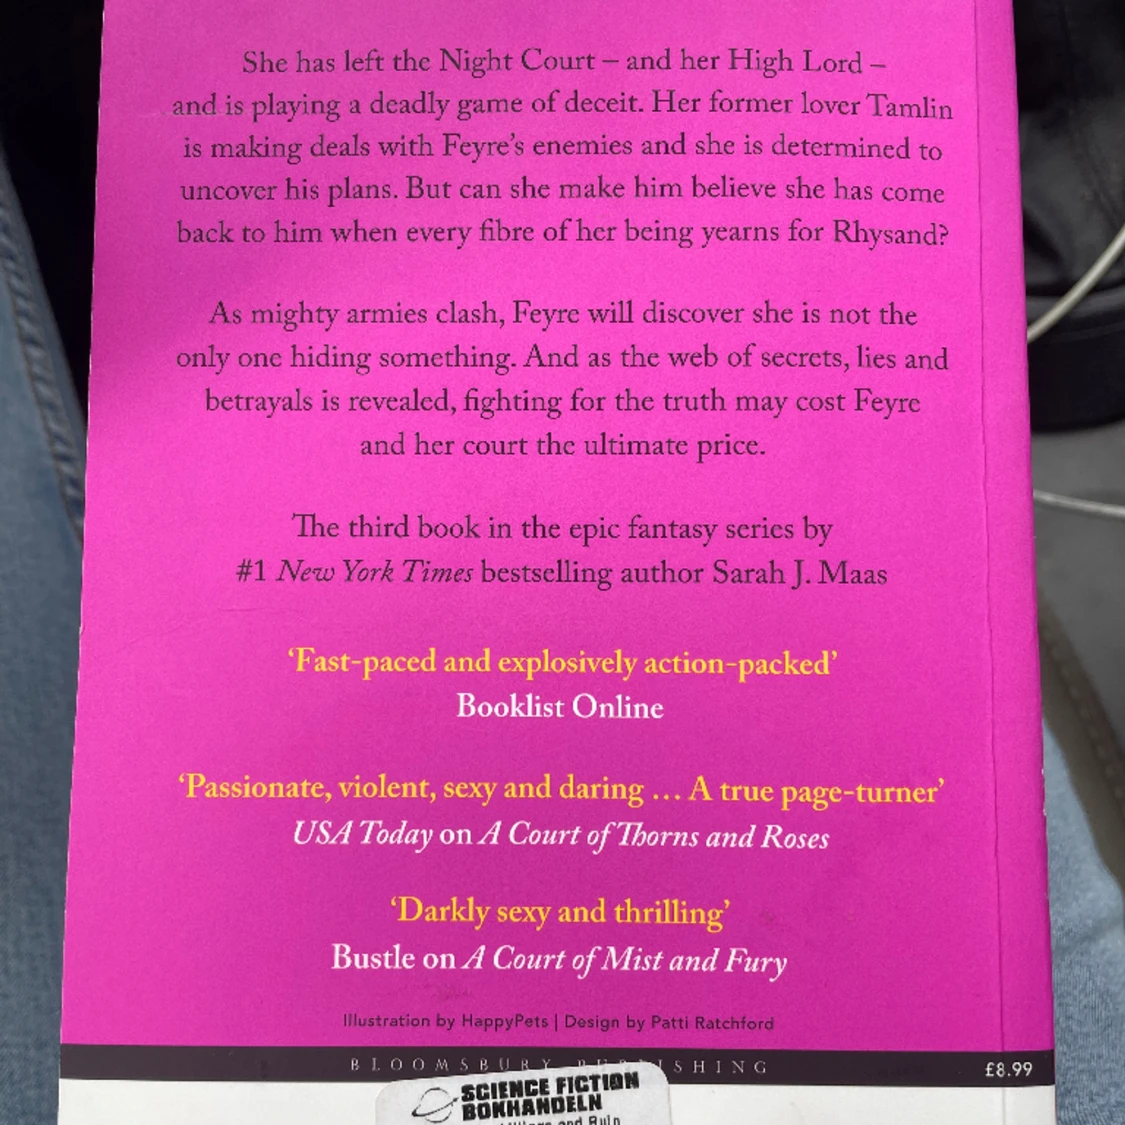 She has left the Night Court – and her High Lord –
and is playing a deadly game of deceit. Her former lover Tamlin
is making deals with Feyre's enemies and she is determined to
uncover his plans. But can she make him believe she has come
back to him when every fibre of her being yearns for Rhysand?
As mighty armies clash, Feyre will discover she is not the
only one hiding something. And as the web of secrets, lies and
betrayals is revealed, fighting for the truth may cost Feyre
and her court the ultimate price.
The third book in the epic fantasy series by
#1 New York Times bestselling author Sarah J. Maas
‘Fast-paced and explosively action-packed’
Booklist Online
‘Passionate, violent, sexy and daring … A true page-turner’
USA Today on A Court of Thorns and Roses
‘Darkly sexy and thrilling’
Bustle on A Court of Mist and Fury
Illustration by HappyPets | Design by Patti Ratchford
BLOOMSBURY PUBLISHING
£8.99
SCIENCE FICTION
BOKHANDELN
and Ruin